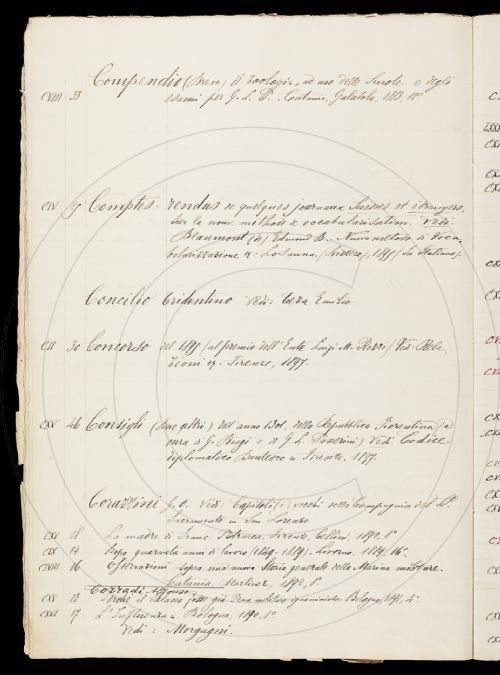 Compendio (breve) di zoologia, ad uso delle Scuole e degli
CVIII 33 esami per G. L. D. Catania, Galàtola, 1883, 1°
CIV Comptes-rendus de quelques journaux Suisses et étrangers,
sur la nouv. méthode de vocabularisation. Vedi
Beaumont (de) Edmond B.. Nuovo metodo di voca-
bolarizzazione &. Losanna, (Svizzera), 1895 (In Italiano).
Concilio Tridentino Vedi: Emilio
CII 30 Concorso del 1895 (al premio dell'Ente Luigi M. Rizzi) Ved. Rela-
zioni &. Firenze, 1897.
CXV 46 Consigli (due altri) dell'anno 1301. della Repubblica Fiorentina (a
cura di G. Biagi e di G. L. Passerini) Vedi Codice
diplomatico Dantesco. Firenze, 1897
Corazzini G. O. Vedi: Capitoli (i) vecchi della Compagnia del SS.
Sacramento in San Lorenzo
CXV 18 La madre di Franc. Petrarca. Firenze, Cellini, 1892, 8°
CIX 14 Dopo quaranta anni di lavoro (1849-1889). Livorno, 1889, 16°
CXVIII 16 Osservazioni sopra una nuova Storia generale della Marina militare.
Catania, Martinez, 1892, 8°
Corradi Alfonso.
CXV 13 Bologna, 1891, 4°
CXVI 17 L'Influenza. Bologna, 1890, 8°
Vedi: Morgagni.